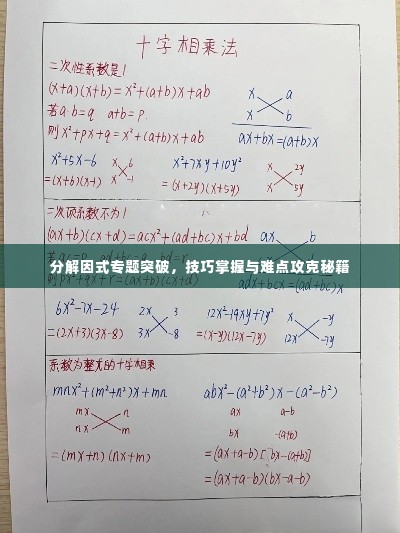 十字相乘法
二次性系数是1
(x+a)(x+b)=x²+(a+b)x+ab
若a·b=q a+b=p.
则x²+px+q=x²+(a+b)x+ab
x a
x b
ax+bx=(a+b)x
x²+5x-6 x 6
x -1
=(x+6)(x-1)
x²+7xy+10y² x 2y
x 5y
=(x+2y)(x+5y)
二次项系数不为1
(ax+b)(cx+d)=acx²+(ad+bc)x+bd
ax b
分解因式专题突破，技巧掌握与难点攻克秘籍
adx+bcx
6x²-7x-24 2x 3
3x -8
=(2x+3)(3x-8)
12x²-19xy+7y² x -y
12x -7y
=(x-y)(12x-7y)
系数为整式的十字相乘
mnx²+(m²+n²)x+mn
mx n
nx m
=(mx+n)(nx+m)
abx²-(a²+b²)x-(a²-b²)
ax a-b
bx -(a+b)
=(ax+a-b)[bx-(a+b)]
=(ax+a-b)(bx-a-b)